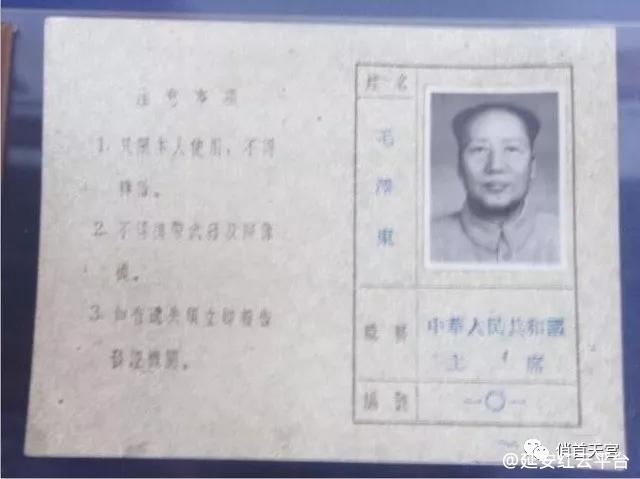 注意事項
1. 只限本人使用，不得
轉借。
2. 不得携帶武器及照像
機。
3. 如有遺失須立即報告
發証機関。
姓名
毛澤東
職務
中華人民共和國
主席
編號
一〇一
俏首天宫
@延安红云平台